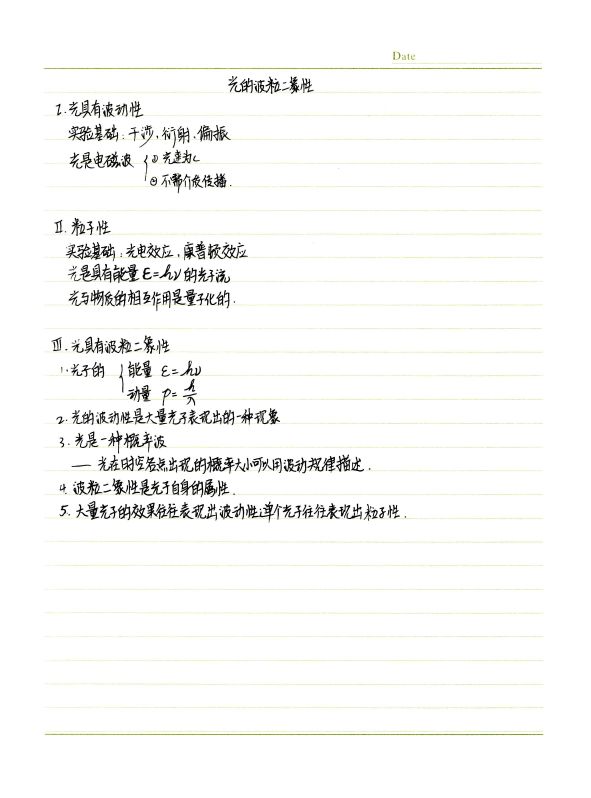 Date
光的波粒二象性
I. 光具有波动性
实验基础: 干涉, 衍射, 偏振
光是电磁波 { ① 光速为c
② 不需介质传播.
II. 粒子性
实验基础: 光电效应, 康普顿效应
光是具有能量 ε=hν 的光子流
光与物质的相互作用是量子化的.
III. 光具有波粒二象性
1. 光子的 { 能量 ε=hν
动量 p=h/λ
2. 光的波动性是大量光子表现出的一种现象
3. 光是一种概率波
— 光在时空各点出现的概率大小可以用波动规律描述.
4. 波粒二象性是光子自身的属性.
5. 大量光子的效果往往表现出波动性; 单个光子往往表现出粒子性.